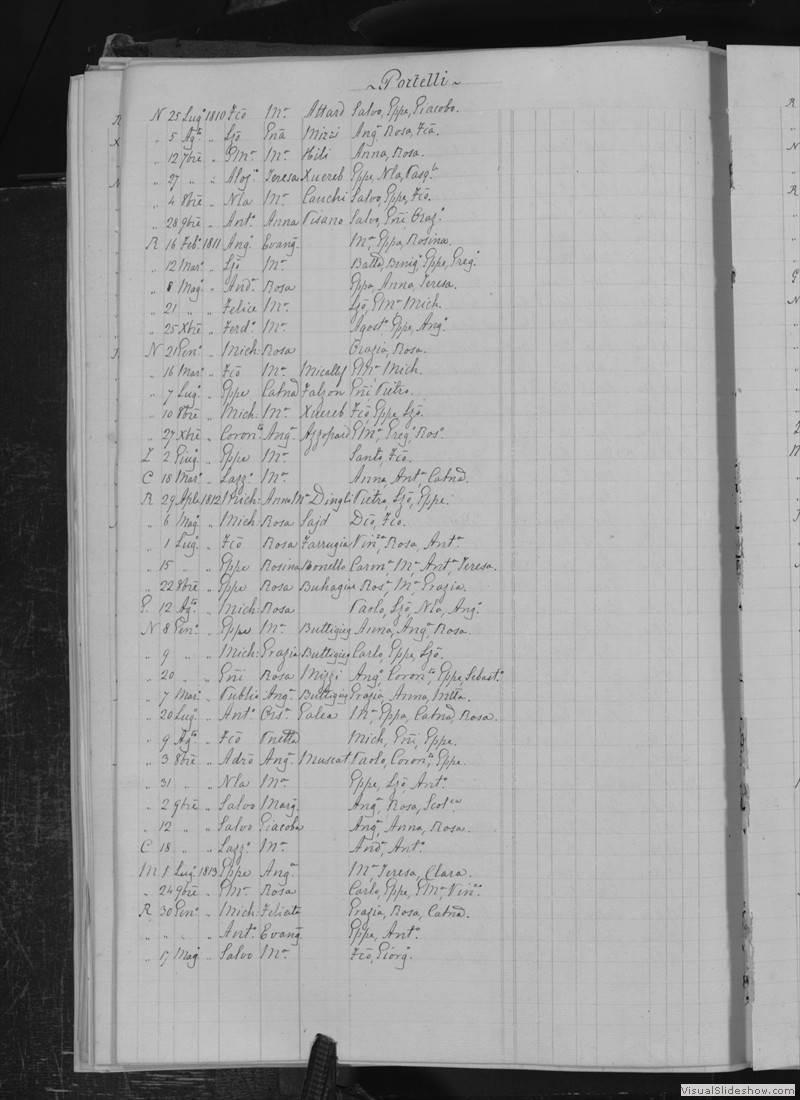 ~Portelli~
N 25 Lug.º 1810 Fcō M.ª Attard Salvo, Eppe, Giacobo.
„ 5 Ag.to „ Ljō Gnā Mizzi Ang.ª Rosa, Fcā.
„ 12 7brē „ GM.ª M.ª Hili Anna, Rosa.
„ 27 „ „ Aloj.º Teresa Xuereb Eppe, Nla, Pasq.le
„ 4 8brē „ Nla M.ª Cauchi Salvo, Eppe, Fcō.
„ 28 9brē „ Ant.º Anna Pisano Salvo, Gñi, Oraz.º
R 16 Feb.º 1811 Ang.º Evang. M.ª Eppa, Rosina.
„ 12 Mar.º „ Ljō M.ª Batta, Benig.º Eppe, Greg.º
„ 8 Mag.º „ And.ª Rosa Eppa, Anna, Teresa.
„ 21 „ „ Felice M.ª Ljō, GM.ª Mich.
„ 25 Xbrē „ Ferd.º M.ª Agost.º Eppe, Ang.º
N 21 Gen.º „ Mich: Rosa Orazia, Rosa.
„ 16 Mar.º „ Fcō M.ª Micallef GM.ª Mich.
„ 7 Lug.º „ Eppe Catnā Falzon Gñi, Pietro.
„ 10 8brē „ Mich: M.ª Xuereb Fcō, Eppe, Ljō.
„ 27 Xbrē „ Coron.to Ang.ª Azzopard GM.ª, Greg.º, Ros.º
Z 2 Giug.º „ Eppe M.ª Santo, Fcō.
C 18 Mar.º „ Lazz.º M.ª Anna, Ant.ª Catnā.
R 29 Aple 1812 Mich: Anna M.ª Dingli Pietro, Ljō, Eppe.
„ 6 Mag.º „ Mich: Rosa Sajd Dcō, Fcō.
„ 1 Lug.º „ Fcō Rosa Farrugia Vin.za, Rosa, Ant.ª
„ 15 „ „ Eppe Rosina Bonello Carm.ª M.ª Ant.ª Teresa.
„ 22 8brē „ Eppe Rosa Buhagiar Ros.º, M.ª Grazia.
G. 12 Ag.to „ Mich: Rosa Paolo, Ljō, Nla, Ang.º
N 8 Gen.º „ Eppe M.ª Buttigieg Anna, Ang.ª Rosa.
„ 9 „ „ Mich: Grazia Buttigieg Carlo, Eppe, Ljō.
„ 20 „ „ Gñi Rosa Mizzi Ang.º, Coron.to, Eppe, Sebast.º
„ 7 Mar.º „ Publio Ang.ª Buttigieg Grazia, Anna,
„ 20 Lug.º „ Ant.º Ors.ª Galea M.ª Eppa, Catnā, Rosa.
„ 9 Ag.to „ Fcō Mich, Gñi, Eppe.
„ 3 8brē „ Adrō Ang.ª Muscat Paolo, Coron.to, Eppe.
„ 31 „ „ Nla M.ª Eppe, Ljō, Ant.º
„ 2 9brē „ Salvo Marg. Ang.ª, Rosa, Scol.ca
„ 12 „ „ Salvo Giacoba Ang.ª, Anna, Rosa.
C 18 „ „ Lazz.º M.ª And.ª, Ant.º
M 5 Lug.º 1813 Eppe Ang.ª M.ª Teresa, Clara.
„ 24 9brē „ GM.ª Rosa Carlo, Eppe, GM.ª, Vin.zo
R 30 Gen.º „ Mich: Felicita Grazia, Rosa, Catnā.
„ „ „ „ Ant.º Evang. Eppe, Ant.º
„ 17 Mag.º „ Salvo M.ª Fcō, Giorg.º
VisualSlideshow.com